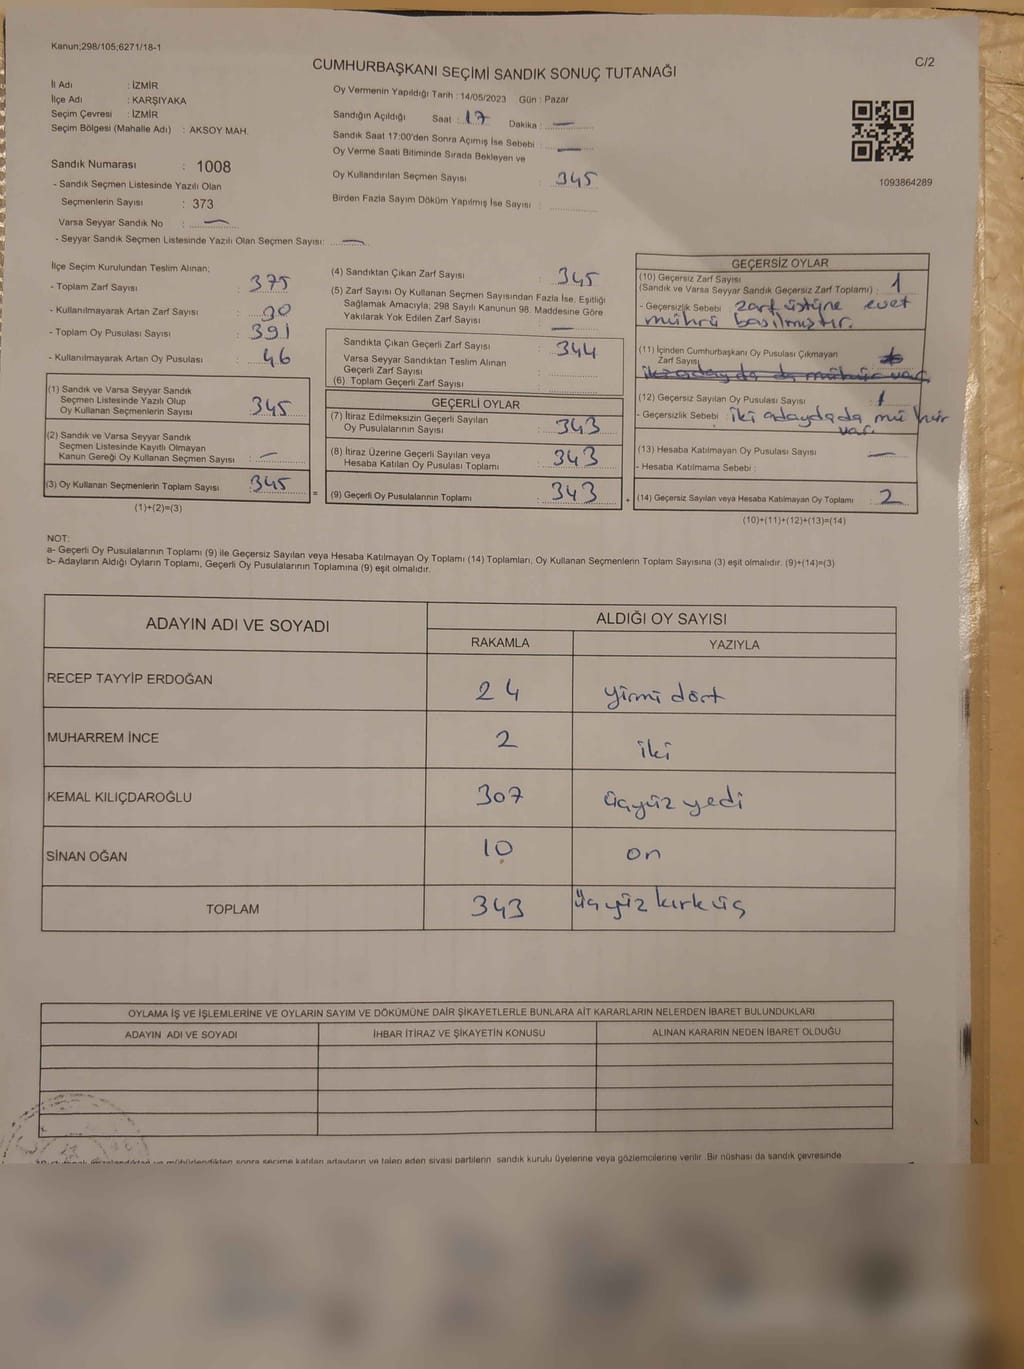 Kanun;298/105;6271/18-1
C/2
CUMHURBAŞKANI SEÇİMİ SANDIK SONUÇ TUTANAĞI
İl Adı : İZMİR
İlçe Adı : KARŞIYAKA
Seçim Çevresi : İZMİR
Seçim Bölgesi (Mahalle Adı) : AKSOY MAH.
Sandık Numarası : 1008
- Sandık Seçmen Listesinde Yazılı Olan
Seçmenlerin Sayısı : 373
Varsa Seyyar Sandık No : —
- Seyyar Sandık Seçmen Listesinde Yazılı Olan Seçmen Sayısı: —
Oy Vermenin Yapıldığı Tarih : 14/05/2023 Gün : Pazar
Sandığın Açıldığı Saat : 17 Dakika : —
Sandık Saat 17:00'den Sonra Açımış İse Sebebi : —
Oy Verme Saati Bitiminde Sırada Bekleyen ve
Oy Kullandırılan Seçmen Sayısı : 345
Birden Fazla Sayım Döküm Yapılmış İse Sayısı :
1093864289
İlçe Seçim Kurulundan Teslim Alınan;
- Toplam Zarf Sayısı : 375
- Kullanılmayarak Artan Zarf Sayısı : 30
- Toplam Oy Pusulası Sayısı : 391
- Kullanılmayarak Artan Oy Pusulası : 46
(1) Sandık ve Varsa Seyyar Sandık
Seçmen Listesinde Yazılı Olup
Oy Kullanan Seçmenlerin Sayısı : 345
(2) Sandık ve Varsa Seyyar Sandık
Seçmen Listesinde Kayıtlı Olmayan
Kanun Gereği Oy Kullanan Seçmen Sayısı : —
(3) Oy Kullanan Seçmenlerin Toplam Sayısı : 345
(1)+(2)=(3)
(4) Sandıktan Çıkan Zarf Sayısı : 345
(5) Zarf Sayısı Oy Kullanan Seçmen Sayısından Fazla İse, Eşitliği
Sağlamak Amacıyla; 298 Sayılı Kanunun 98. Maddesine Göre
Yakılarak Yok Edilen Zarf Sayısı : —
Sandıkta Çıkan Geçerli Zarf Sayısı : 344
Varsa Seyyar Sandıktan Teslim Alınan
Geçerli Zarf Sayısı :
(6) Toplam Geçerli Zarf Sayısı :
GEÇERLİ OYLAR
(7) İtiraz Edilmeksizin Geçerli Sayılan
Oy Pusulalarının Sayısı : 343
(8) İtiraz Üzerine Geçerli Sayılan veya
Hesaba Katılan Oy Pusulası Toplamı : 343
= (9) Geçerli Oy Pusulalarının Toplamı : 343 +
GEÇERSİZ OYLAR
(10) Geçersiz Zarf Sayısı
(Sandık ve Varsa Seyyar Sandık Geçersiz Zarf Toplamı) : 1
- Geçersizlik Sebebi : zarf üstüne evet
mührü basılmıştır.
(11) İçinden Cumhurbaşkanı Oy Pusulası Çıkmayan
Zarf Sayısı
iki adayda da mühür var.
(12) Geçersiz Sayılan Oy Pusulası Sayısı : 1
- Geçersizlik Sebebi : iki adaydada mühür
var.
(13) Hesaba Katılmayan Oy Pusulası Sayısı : —
- Hesaba Katılmama Sebebi :
(14) Geçersiz Sayılan veya Hesaba Katılmayan Oy Toplamı : 2
(10)+(11)+(12)+(13)=(14)
NOT:
a- Geçerli Oy Pusulalarının Toplamı (9) ile Geçersiz Sayılan veya Hesaba Katılmayan Oy Toplamı (14) Toplamları, Oy Kullanan Seçmenlerin Toplam Sayısına (3) eşit olmalıdır. (9)+(14)=(3)
b- Adayların Aldığı Oyların Toplamı, Geçerli Oy Pusulalarının Toplamına (9) eşit olmalıdır.
ADAYIN ADI VE SOYADI ALDIĞI OY SAYISI
RAKAMLA YAZIYLA
RECEP TAYYİP ERDOĞAN 24 yirmi dört
MUHARREM İNCE 2 iki
KEMAL KILIÇDAROĞLU 307 üçyüz yedi
SİNAN OĞAN 10 on
TOPLAM 343 üçyüz kırk üç
OYLAMA İŞ VE İŞLEMLERİNE VE OYLARIN SAYIM VE DÖKÜMÜNE DAİR ŞİKAYETLERLE BUNLARA AİT KARARLARIN NELERDEN İBARET BULUNDUKLARI
ADAYIN ADI VE SOYADI İHBAR İTİRAZ VE ŞİKAYETİN KONUSU ALINAN KARARIN NEDEN İBARET OLDUĞU
mühürlendikten sonra seçime katılan adayların ve talep eden siyasi partilerin sandık kurulu üyelerine veya gözlemcilerine verilir .Bir nüshası da sandık çevresinde